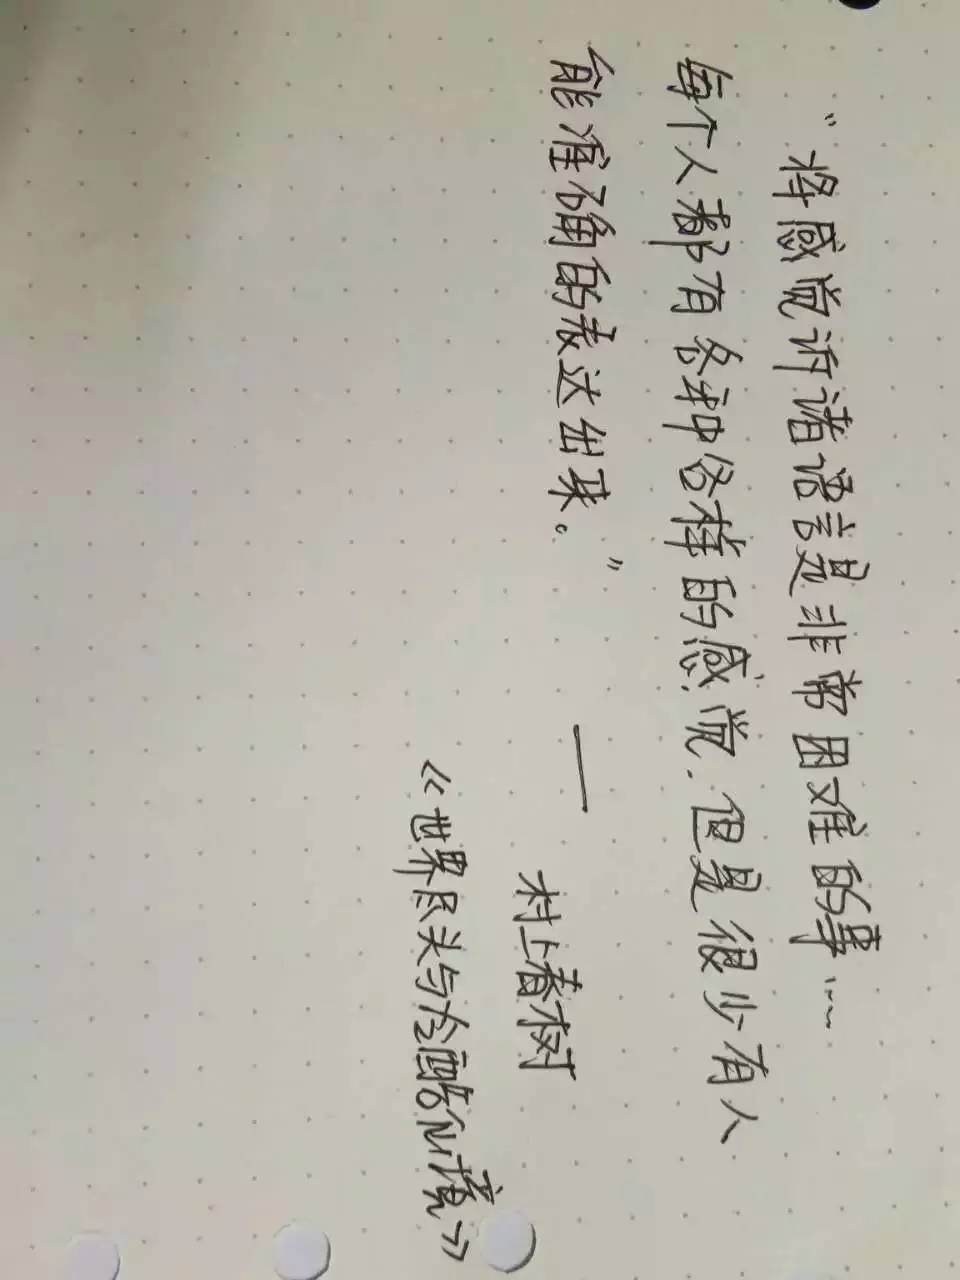 “将感觉诉诸语言是非常困难的事……
每个人都有各种各样的感觉，但是很少有人
能准确的表达出来。”
——村上春树
《世界尽头与冷酷仙境》